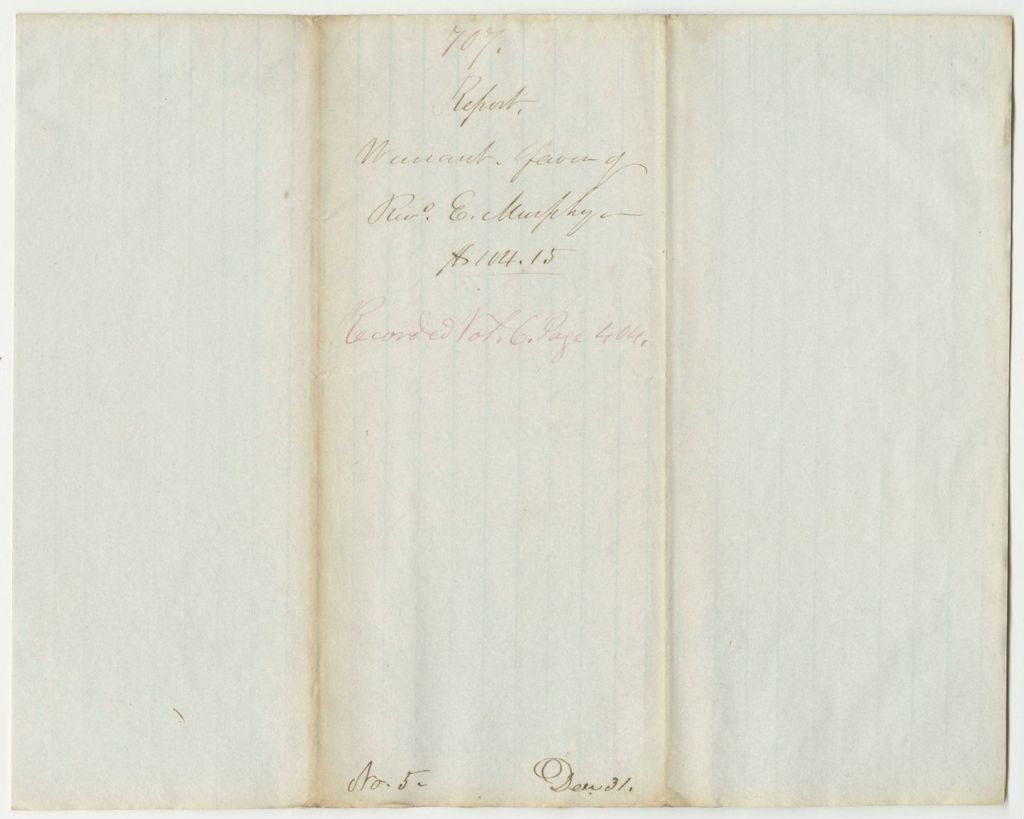 707.
Report.
Warrant. favor of
Revd. E. Murphy
$104.15
Recorded Vol. 6. Page 404.
No. 5-
Dec. 31.